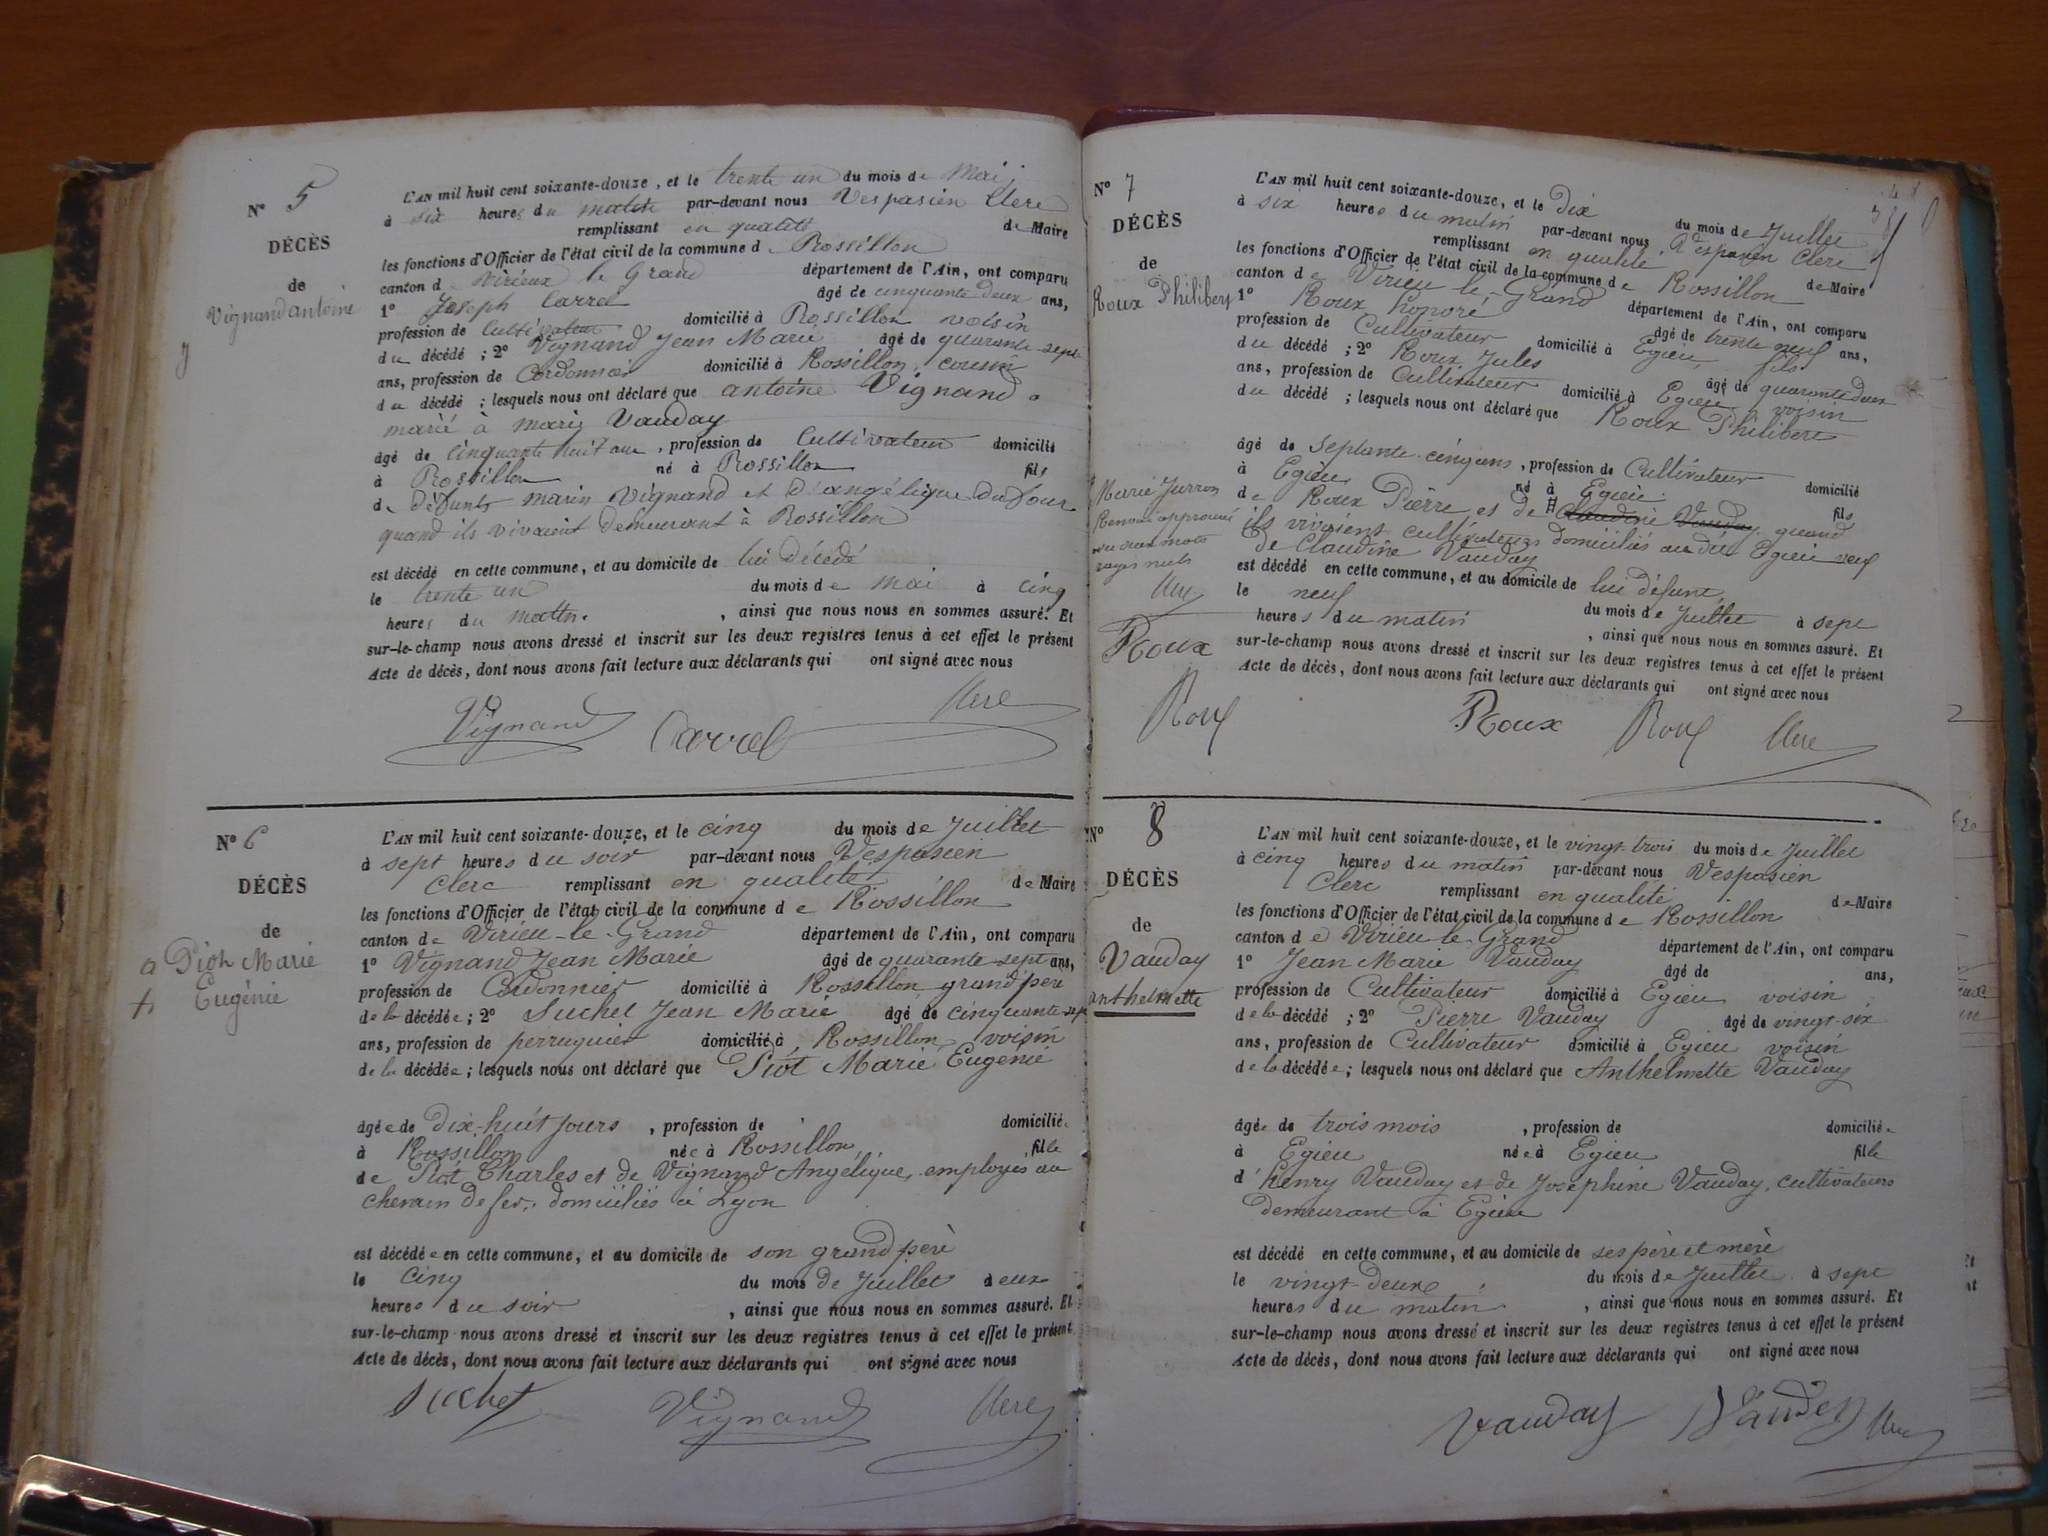 N° 5
DÉCÈS
de
Vignand antoine
L'AN mil huit cent soixante-douze, et le trente un du mois de Mai
à six heures du matin par-devant nous Vespasien Clerc
remplissant en qualité de Maire
les fonctions d'Officier de l'état civil de la commune de Rossillon
canton de Virieux le Grand département de l'Ain, ont comparu
1° Joseph Carrel âgé de cinquante deux ans,
profession de Cultivateur domicilié à Rossillon voisin
du décédé ; 2° Vignand Jean Marie âgé de quarante-sept
ans, profession de Cordonnier domicilié à Rossillon, cousin
du décédé ; lesquels nous ont déclaré que antoine Vignand
marié à marie Vauday
âgé de cinquante huit ans, profession de Cultivateur domicilié
à Rossillon né à Rossillon fils
de défunts marin Vignand et d'angélique Dufour
quand ils vivaient demeurant à Rossillon
est décédé en cette commune, et au domicile de lui décédé
le trente un du mois de mai à cinq
heures du matin, ainsi que nous nous en sommes assuré. Et
sur-le-champ nous avons dressé et inscrit sur les deux registres tenus à cet effet le présent
Acte de décès, dont nous avons fait lecture aux déclarants qui ont signé avec nous
Vignand Carrel Clerc
N° 6
DÉCÈS
de
Piot Marie
Eugénie
L'AN mil huit cent soixante-douze, et le cinq du mois de Juillet
à sept heures du soir par-devant nous Vespasien
Clerc remplissant en qualité de Maire
les fonctions d'Officier de l'état civil de la commune de Rossillon
canton de Virieu-le-Grand département de l'Ain, ont comparu
1° Vignand Jean Marie âgé de quarante sept ans,
profession de Cordonnier domicilié à Rossillon grand père
de la décédée ; 2° Suchet Jean Marie âgé de cinquante sept
ans, profession de perruquier domicilié à Rossillon, voisin
de la décédée ; lesquels nous ont déclaré que Piot Marie Eugénie
âgée de Dix-huit jours, profession de domiciliée
à Rossillon née à Rossillon, fille
de Piot Charles et de Vignand Angélique, employés au
chemin de fer, domiciliés à Lyon
est décédée en cette commune, et au domicile de son grand père
le cinq du mois de Juillet à deux
heures du soir, ainsi que nous nous en sommes assuré. Et
sur-le-champ nous avons dressé et inscrit sur les deux registres tenus à cet effet le présent
Acte de décès, dont nous avons fait lecture aux déclarants qui ont signé avec nous
Suchet Vignand Clerc
N° 7
DÉCÈS
de
Roux Philibert
L'AN mil huit cent soixante-douze, et le Dix du mois de Juillet
à six heures du matin par-devant nous Vespasien Clerc
remplissant en qualité de Maire
les fonctions d'Officier de l'état civil de la commune de Rossillon
canton de Virieu-le-Grand département de l'Ain, ont comparu
1° Roux honoré âgé de trente neuf ans,
profession de Cultivateur domicilié à Egieu, fils
du décédé ; 2° Roux Jules âgé de quarante deux
ans, profession de Cultivateur domicilié à Egieu, voisin
du décédé ; lesquels nous ont déclaré que Roux Philibert
âgé de septante-cinq ans, profession de Cultivateur domicilié
à Egieu né à Egieu fils
de Roux Pierre et de # Claudine Vauday quand
ils vivaient cultivateurs domiciliés au dit Egieu veuf
de Claudine Vauday
est décédé en cette commune, et au domicile de lui défunt,
le neuf du mois de Juillet à sept
heures du matin, ainsi que nous nous en sommes assuré. Et
sur-le-champ nous avons dressé et inscrit sur les deux registres tenus à cet effet le présent
Acte de décès, dont nous avons fait lecture aux déclarants qui ont signé avec nous
Marie Jurron
Renvoi approuvé
deux mots
rayés nuls
Clerc
Roux
Roux
Roux Roux Clerc
N° 8
DÉCÈS
de
Vauday
anthelmette
L'AN mil huit cent soixante-douze, et le vingt trois du mois de Juillet
à cinq heures du matin par-devant nous Vespasien
Clerc remplissant en qualité de Maire
les fonctions d'Officier de l'état civil de la commune de Rossillon
canton de Virieu-le-Grand département de l'Ain, ont comparu
1° Jean Marie Vauday âgé de ans,
profession de Cultivateur domicilié à Egieu voisin
de la décédé ; 2° Pierre Vauday âgé de vingt-six
ans, profession de Cultivateur domicilié à Egieu voisin
de la décédée ; lesquels nous ont déclaré que Anthelmette Vauday
âgée de trois mois, profession de domiciliée
à Egieu née à Egieu fille
d'henry Vauday et de Josephine Vauday, cultivateurs
demeurant à Egieu
est décédé en cette commune, et au domicile de ses père et mère
le vingt-deux du mois de Juillet à sept
heures du matin, ainsi que nous nous en sommes assuré. Et
sur-le-champ nous avons dressé et inscrit sur les deux registres tenus à cet effet le présent
Acte de décès, dont nous avons fait lecture aux déclarants qui ont signé avec nous
Vauday Vauday Clerc